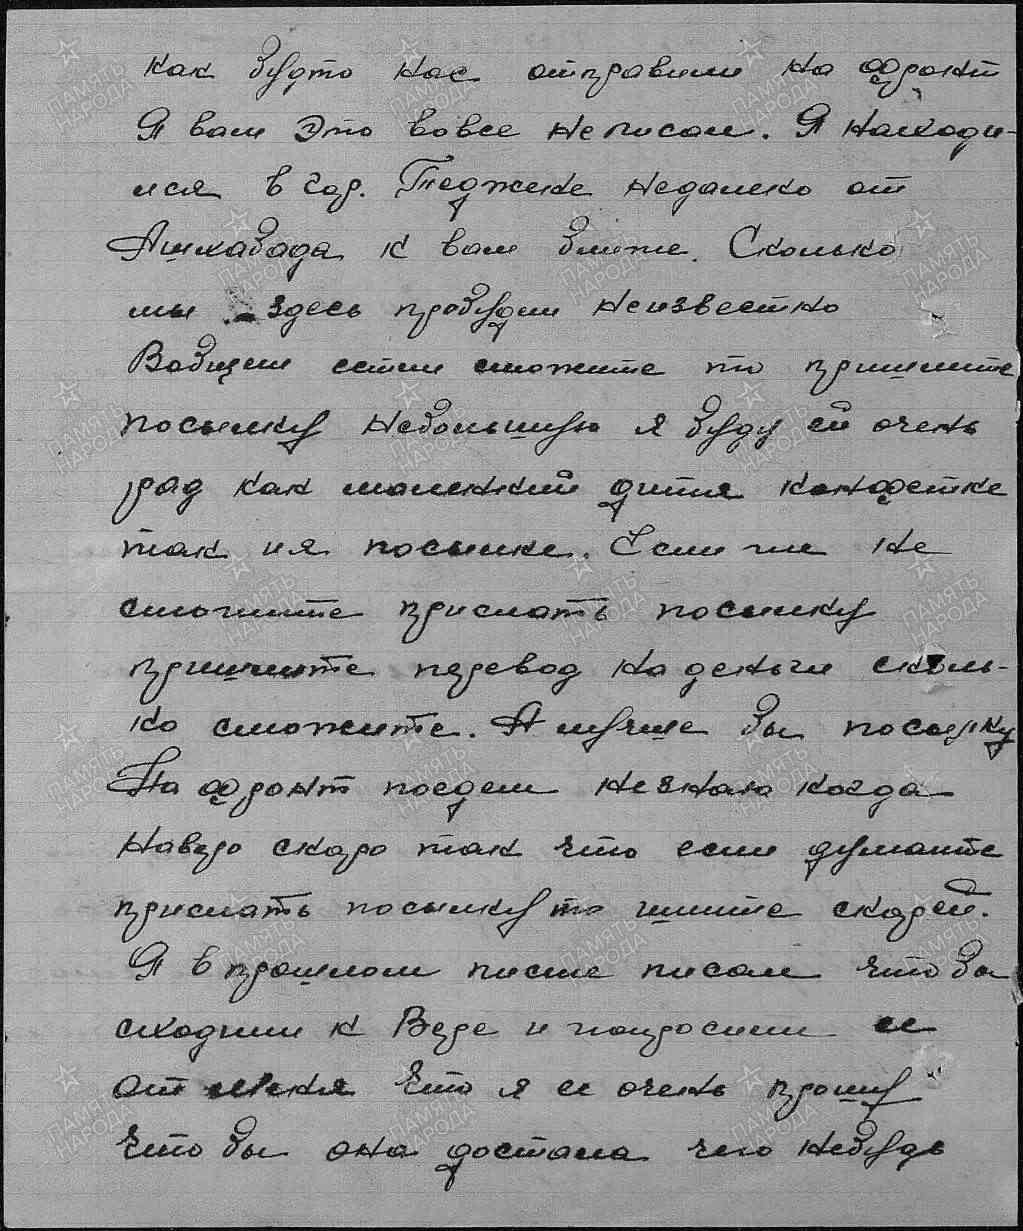 как будто нас отправили на фронт
Я вам это вовсе неписал. Я находи-
лся в гор. Теджене недалеко от
Ашхабада к вам ближе. Сколько
мы здесь пробудем неизвестно
Вобщем если сможите то пришлите
посылку небольшую я буду ей очень
рад как маленкий дитя конфетке
так и я посылке. Если ж не
сможите прислать посылку
пришлите перевод на деньги сколь-
ко сможите. А лучше бы посылку
На фронт поедем незнаю когда
наверо скоро так что если думаите
прислать посылку то шлите скорей.
Я в прошлом писме писал что бы
сходили к Вере и попросили ее
от меня что я ее очень прошу
что бы она достала чего небудь
ПАМЯТЬ НАРОДА